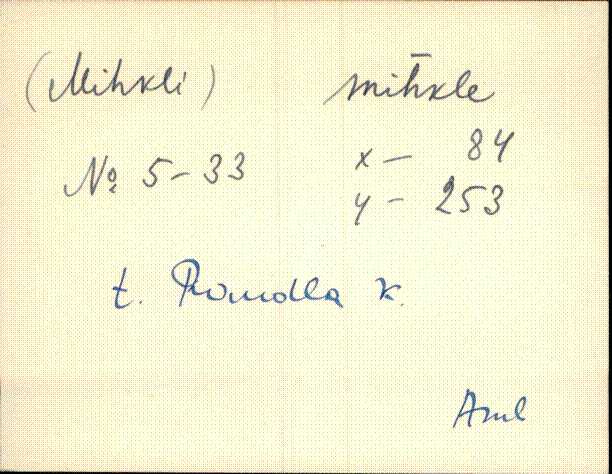 (Mihkli) mīhkle
№ 5-33 x — 84
y - 253
t. Roudla k.
Aml